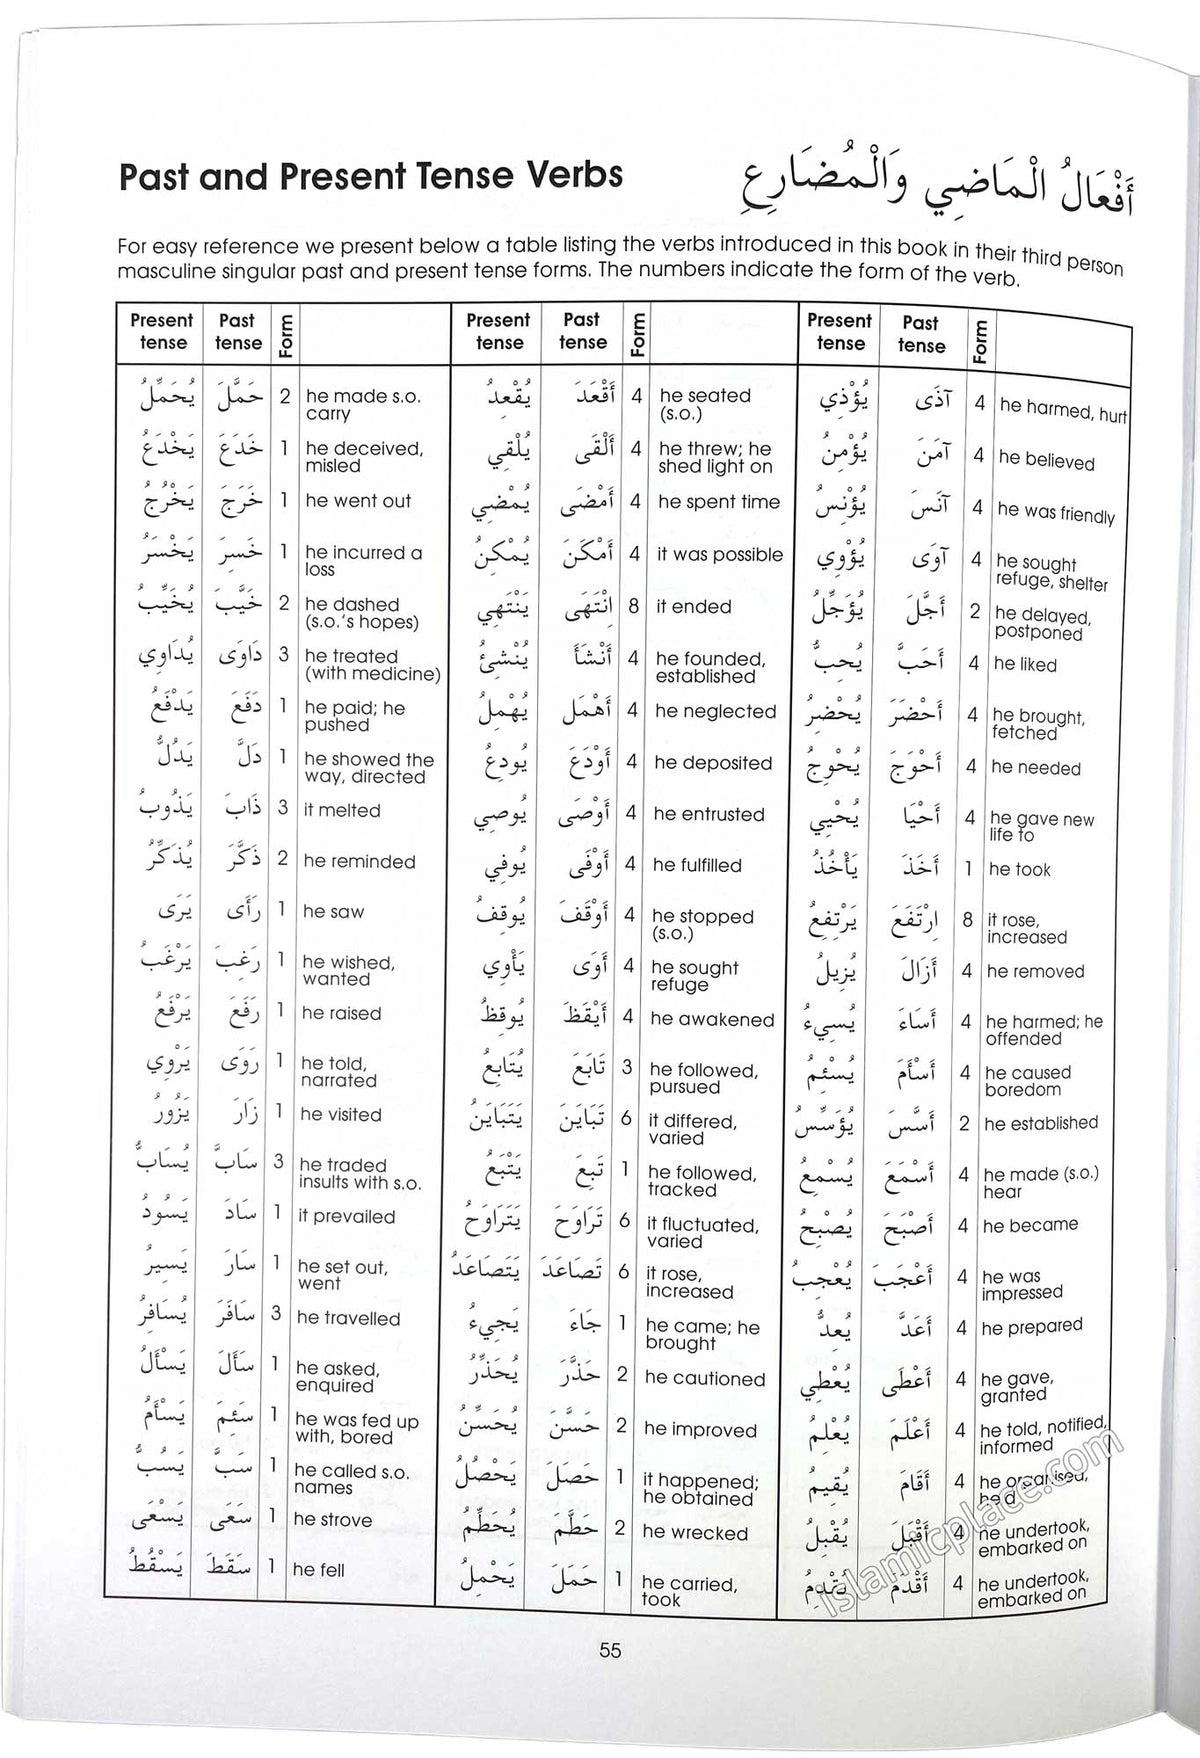 Past and Present Tense Verbs
أَفْعَالُ الْمَاضِي وَالْمُضَارِعِ
For easy reference we present below a table listing the verbs introduced in this book in their third person
masculine singular past and present tense forms. The numbers indicate the form of the verb.
Present tense Past tense Form
يُحَمِّلُ حَمَّلَ 2 he made s.o.
carry
يَخْدَعُ خَدَعَ 1 he deceived,
misled
يَخْرُجُ خَرَجَ 1 he went out
يَخْسَرُ خَسِرَ 1 he incurred a
loss
يُخَيِّبُ خَيَّبَ 2 he dashed
(s.o.'s hopes)
يُدَاوِي دَاوَى 3 he treated
(with medicine)
يَدْفَعُ دَفَعَ 1 he paid; he
pushed
يَدُلُّ دَلَّ 1 he showed the
way, directed
يَذُوبُ ذَابَ 3 it melted
يُذَكِّرُ ذَكَّرَ 2 he reminded
يَرَى رَأَى 1 he saw
يَرْغَبُ رَغِبَ 1 he wished,
wanted
يَرْفَعُ رَفَعَ 1 he raised
يَرْوِي رَوَى 1 he told,
narrated
يَزُورُ زَارَ 1 he visited
يُسَابُّ سَابَّ 3 he traded
insults with s.o.
يَسُودُ سَادَ 1 it prevailed
يَسِيرُ سَارَ 1 he set out,
went
يُسَافِرُ سَافَرَ 3 he travelled
يَسْأَلُ سَأَلَ 1 he asked,
enquired
يَسْأَمُ سَئِمَ 1 he was fed up
with, bored
يَسُبُّ سَبَّ 1 he called s.o.
names
يَسْعَى سَعَى 1 he strove
يَسْقُطُ سَقَطَ 1 he fell
Present tense Past tense Form
يُقْعِدُ أَقْعَدَ 4 he seated
(s.o.)
يُلْقِي أَلْقَى 4 he threw; he
shed light on
يُمْضِي أَمْضَى 4 he spent time
يُمْكِنُ أَمْكَنَ 4 it was possible
يَنْتَهِي اِنْتَهَى 8 it ended
يُنْشِئُ أَنْشَأَ 4 he founded,
established
يُهْمِلُ أَهْمَلَ 4 he neglected
يُودِعُ أَوْدَعَ 4 he deposited
يُوصِي أَوْصَى 4 he entrusted
يُوفِي أَوْفَى 4 he fulfilled
يُوقِفُ أَوْقَفَ 4 he stopped
(s.o.)
يَأْوِي أَوَى 4 he sought
refuge
يُوقِظُ أَيْقَظَ 4 he awakened
يُتَابِعُ تَابَعَ 3 he followed,
pursued
يَتَبَايَنُ تَبَايَنَ 6 it differed,
varied
يَتْبَعُ تَبِعَ 1 he followed,
tracked
يَتَرَاوَحُ تَرَاوَحَ 6 it fluctuated,
varied
يَتَصَاعَدُ تَصَاعَدَ 6 it rose,
increased
يَجِيءُ جَاءَ 1 he came; he
brought
يُحَذِّرُ حَذَّرَ 2 he cautioned
يُحَسِّنُ حَسَّنَ 2 he improved
يَحْصُلُ حَصَلَ 1 it happened;
he obtained
يُحَطِّمُ حَطَّمَ 2 he wrecked
يَحْمِلُ حَمَلَ 1 he carried,
took
Present tense Past tense Form
يُؤْذِي آذَى 4 he harmed, hurt
يُؤْمِنُ آمَنَ 4 he believed
يُؤْنِسُ آنَسَ 4 he was friendly
يُؤْوِي آوَى 4 he sought
refuge, shelter
يُؤَجِّلُ أَجَّلَ 2 he delayed,
postponed
يُحِبُّ أَحَبَّ 4 he liked
يُحْضِرُ أَحْضَرَ 4 he brought,
fetched
يُحْوِجُ أَحْوَجَ 4 he needed
يُحْيِي أَحْيَا 4 he gave new
life to
يَأْخُذُ أَخَذَ 1 he took
يَرْتَفِعُ اِرْتَفَعَ 8 it rose,
increased
يُزِيلُ أَزَالَ 4 he removed
يُسِيءُ أَسَاءَ 4 he harmed; he
offended
يُسْئِمُ أَسْأَمَ 4 he caused
boredom
يُؤَسِّسُ أَسَّسَ 2 he established
يُسْمِعُ أَسْمَعَ 4 he made (s.o.)
hear
يُصْبِحُ أَصْبَحَ 4 he became
يُعْجِبُ أَعْجَبَ 4 he was
impressed
يُعِدُّ أَعَدَّ 4 he prepared
يُعْطِي أَعْطَى 4 he gave,
granted
يُعْلِمُ أَعْلَمَ 4 he told, notified,
informed
يُقِيمُ أَقَامَ 4 he organised,
يُقْبِلُ أَقْبَلَ 4 he undertook,
embarked on
يُقْدِمُ أَقْدَمَ 4 he undertook,
embarked on
islamicplace.com
55